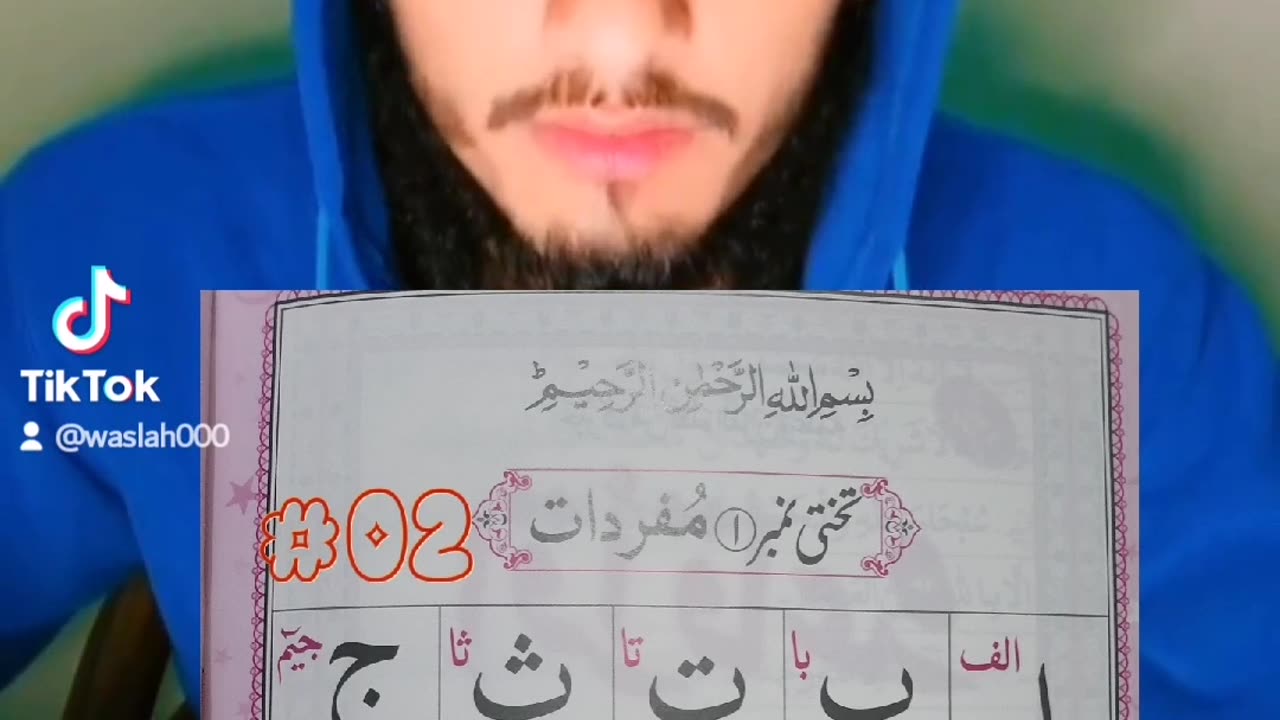 TikTok
@waslah000
بِسْمِ اللهِ الرَّحْمٰنِ الرَّحِيْمِ ط
#02
تختی نمبر ۱ مُفردات
الف با تا ثا جیٓم
ا ب ت ث ج